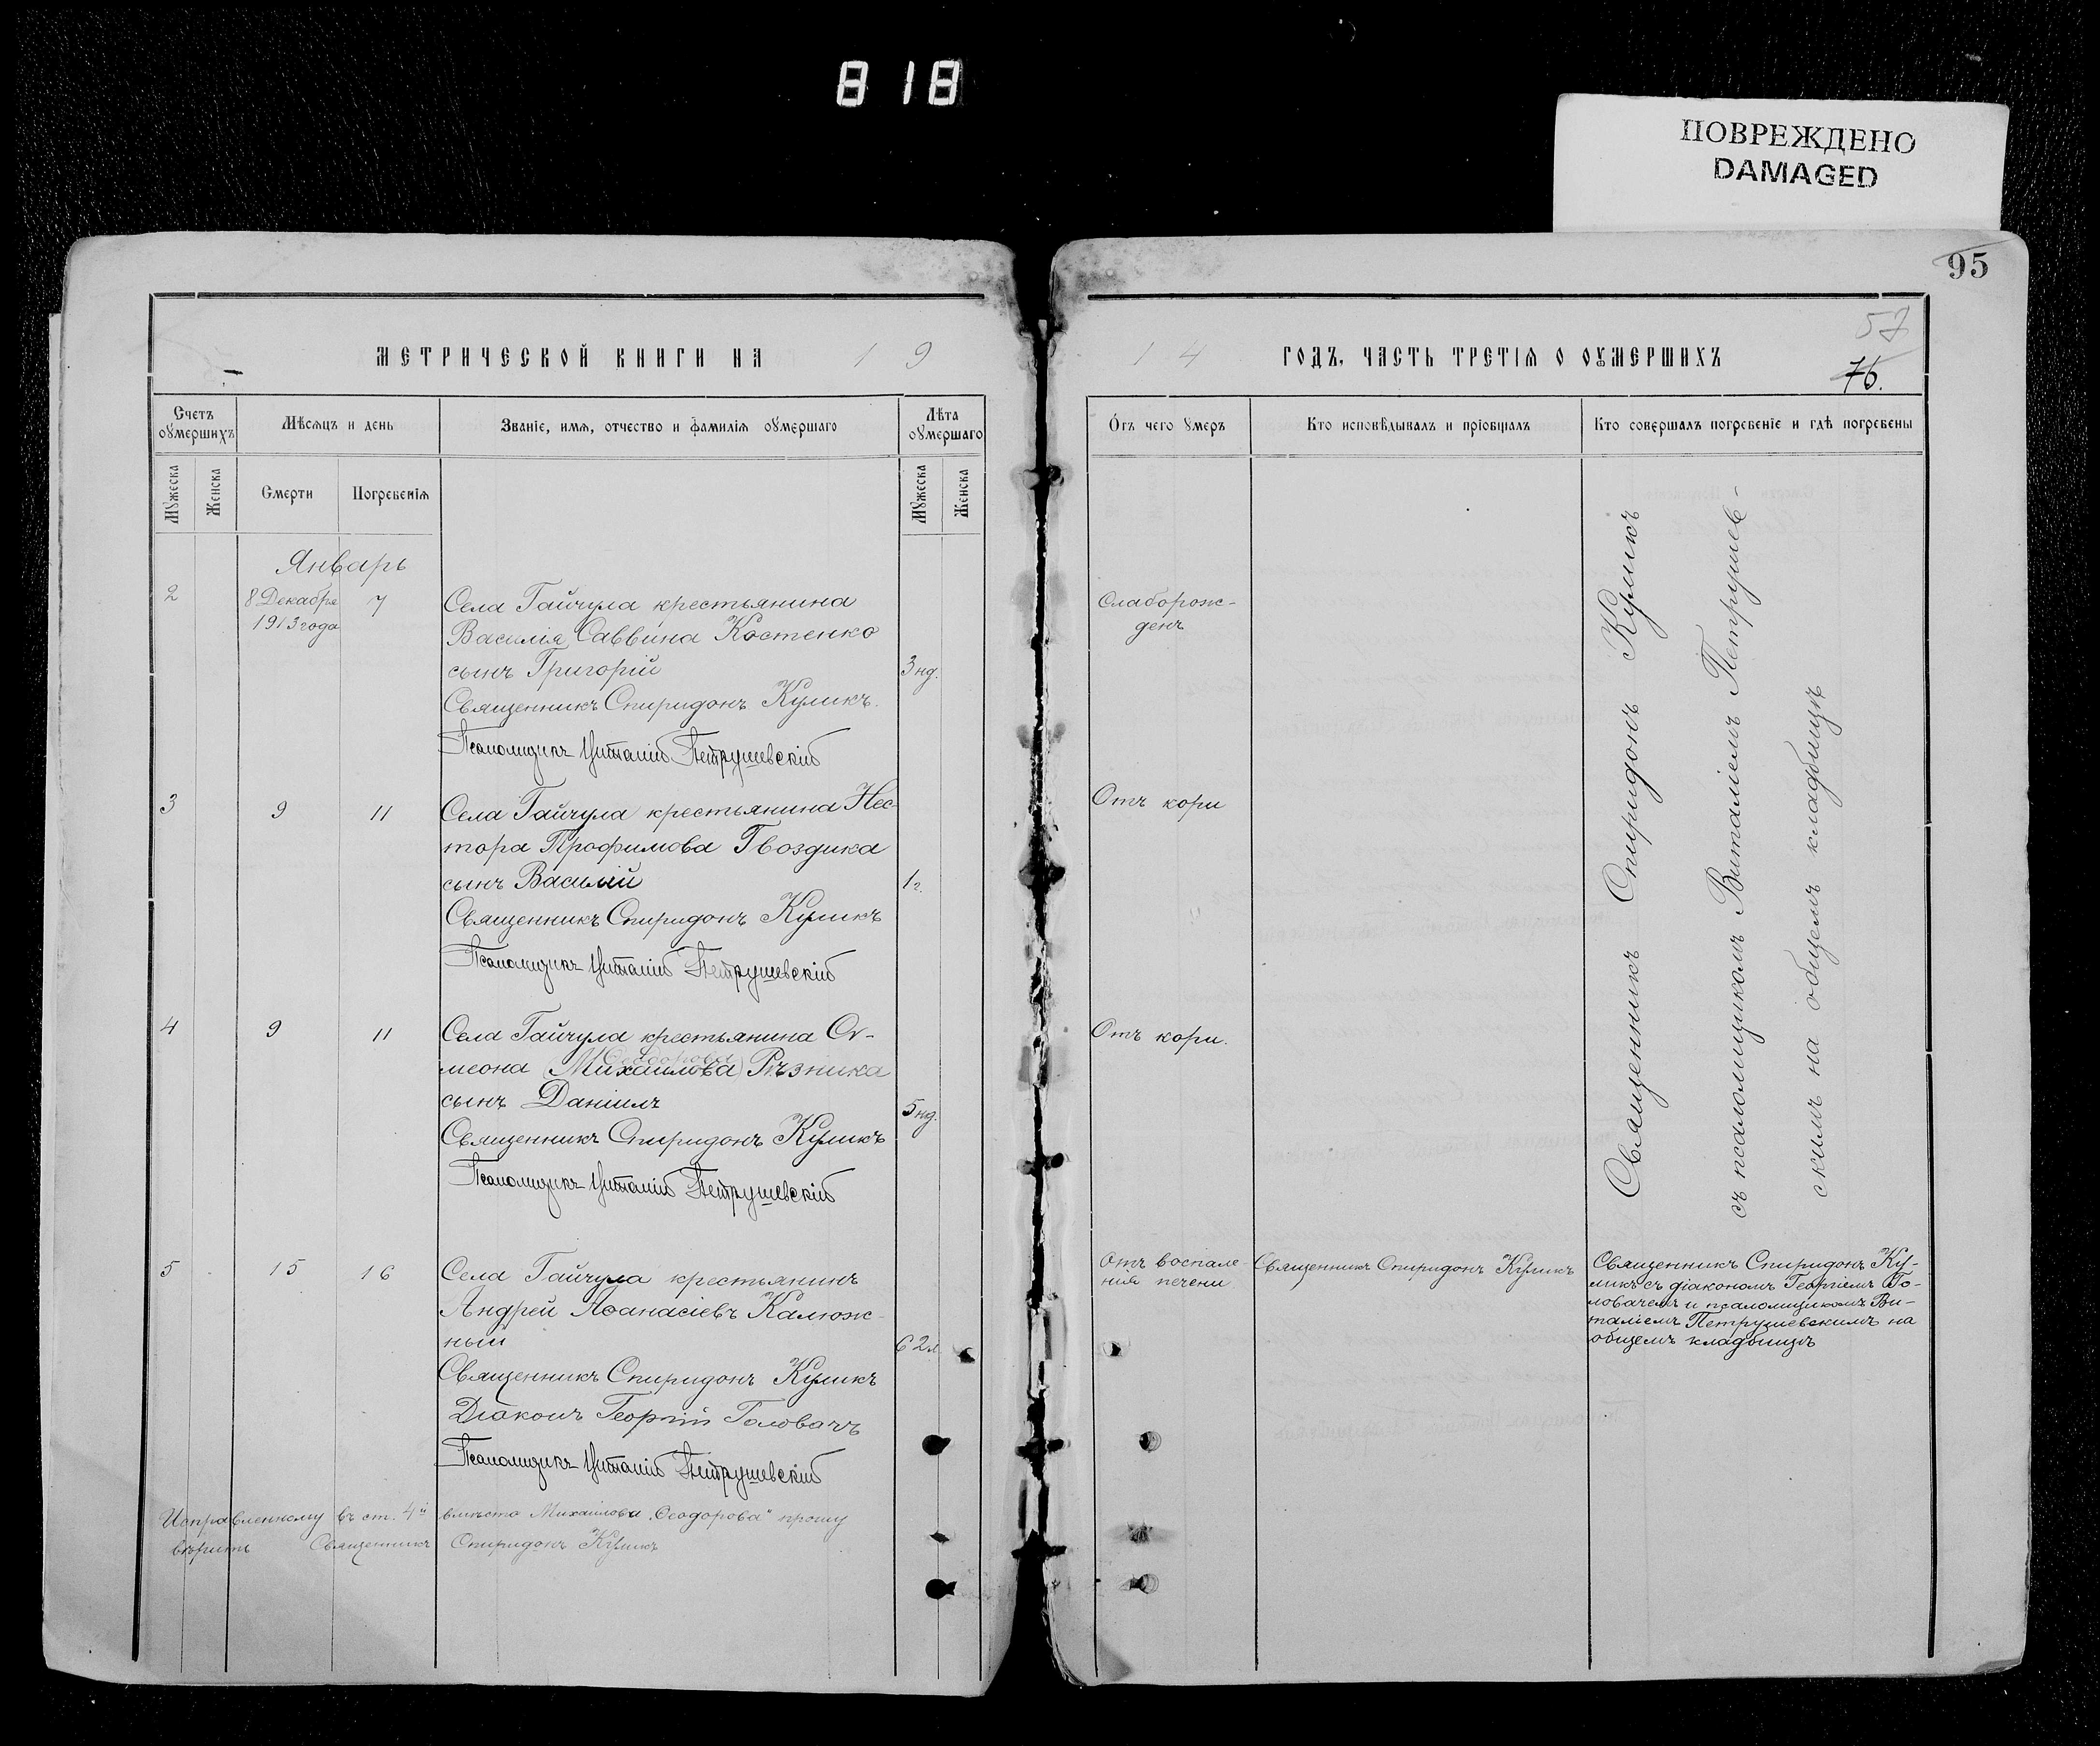 818
ПОВРЕЖДЕНО
DAMAGED
95
МЕТРИЧЕСКОЙ КНИГИ НА 19
14 ГОДЪ, ЧАСТЬ ТРЕТІѦ О ОУМЕРШИХЪ
57
76.
Счетъ оумершихъ
Мѣсѧцъ и день
Званіе, имѧ, отчество и фамиліѧ оумершаго
Лѣта оумершаго
Отъ чего умеръ
Кто исповѣдывалъ и пріобщалъ
Кто совершалъ погребеніе и гдѣ погребены
Мужеска
Женска
Смерти
Погребеніѧ
Мужеска
Женска
Январь
2 8 Декабря 7 Села Гайчула крестьянина
1913 года Василія Саввина Костенко
сынъ Григорій 3 нд.
Священникъ Спиридонъ Куликъ.
Псаломщикъ Виталій Петрушевскій
Слаборож-
денъ
3 9 11 Села Гайчула крестьянина Нес-
тора Трофимова Гвоздика
сынъ Василій 1 г.
Священникъ Спиридонъ Куликъ
Псаломщикъ Виталій Петрушевскій
Отъ кори
4 9 11 Села Гайчула крестьянина Си-
Ѳеодорова
меона (Михаилова) Рѣзника
сынъ Даніилъ 5 нд.
Священникъ Спиридонъ Куликъ
Псаломщикъ Виталій Петрушевскій
Отъ кори.
Священникъ Спиридонъ Куликъ
съ псаломщикомъ Виталіемъ Петрушев-
скимъ на общемъ кладбищѣ
5 15 16 Села Гайчула крестьянинъ
Андрей Аѳанасіевъ Калюж-
ный 62 л.
Священникъ Спиридонъ Куликъ
Діаконъ Георгій Головачъ
Псаломщикъ Виталій Петрушевскій
Отъ воспале-
нія печени
Священникъ Спиридонъ Куликъ
Священникъ Спиридонъ Ку-
ликъ съ діакономъ Георгіемъ Го-
ловачемъ и псаломщикомъ Ви-
таліемъ Петрушевскимъ на
общемъ кладбищѣ
Исправленному въ ст. 4й вмѣсто Михаилова „Ѳеодорова" прошу
вѣрить Священникъ Спиридонъ Куликъ